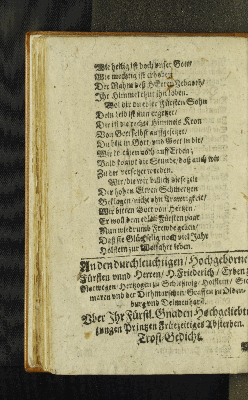 Wie heilig ist doch unser Gott/
Wie mechtig ist erhaben
Der Nahm deß HErren Zebaoth/
Ihr Himmel thut ihn loben.
Wol dir du edler Fürsten Sohn
Dein leid ist nun ergetzet/
Dir ist die rechte Himmels Kron
Von Gott selbst auffgesetzet/
Du bist in Gott/ und Gott in dir/
Wir auff Erden/
Bald kompt die Stunde/ daß auch wir
Zu dir versetzet werden.
Wir/ die wir billich diese zeit
Der hohen Eltern Schmertzen
Beklagen/ nicht ohn Traurigkeit/
Wir bitten Gott von Hertzen/
Er woll dem edlen Fürsten paar
Nun wiedrumb Frewde geben/
Daß sie Glückselig noch viel Jahr
Holstein zur Wolfahrt leben.
An den durchleuchtigen/ Hochgeborne
Fürsten unnd Herren/ H. Friederich/ Erben z
Norwegen/ Hertzogen zu Schleßwig/ Holstein/
maren und der Dithmarschen/ Graffen zu Olden-
burg und Delmenhorst.
Uber Ihr Fürstl. Gnaden Hochgeliebte
jungen Printzen frühzeitiges Absterben.
Trost/Gedicht.